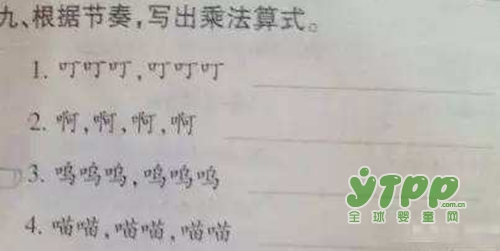 九、根据节奏,写出乘法算式。
1. 叮叮叮,叮叮叮
2. 啊,啊,啊,啊
3. 呜呜呜,呜呜呜
4. 喵喵,喵喵,喵喵
YTPP.com.cn
全球婴童网